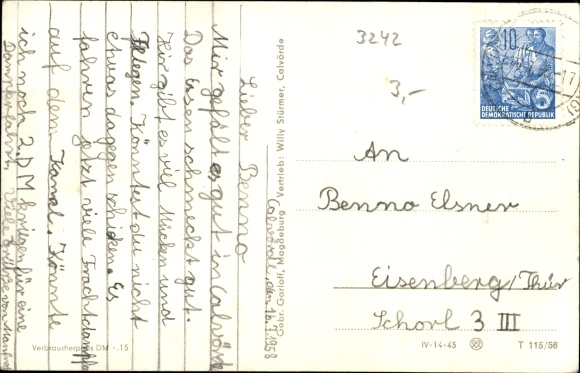 Calvörde, den 16.7.1958
Lieber Benno
Mir gefällt es gut in Calvörde
Das Essen schmeckt gut.
Hir gibt es viel Mücken und
Fliegen. Könntest du nicht
etwas dagegen schicken. Es
fahren jetzt viele Frachtdampfer
auf dem Kanal. Könnte
ich noch 2,DM kriegen für eine
Dampferfahrt. Viele Grüße von Manfred
Verbraucherpreis DM -.15
Gebr. Garloff, Magdeburg Vertrieb: Willy Stürmer, Calvörde
3242
3,-
10
5
DEUTSCHE
DEMOKRATISCHE REPUBLIK
An
Benno Elsner
Eisenberg/Thür
Schorl 3 III
IV-14-45
T 115/56